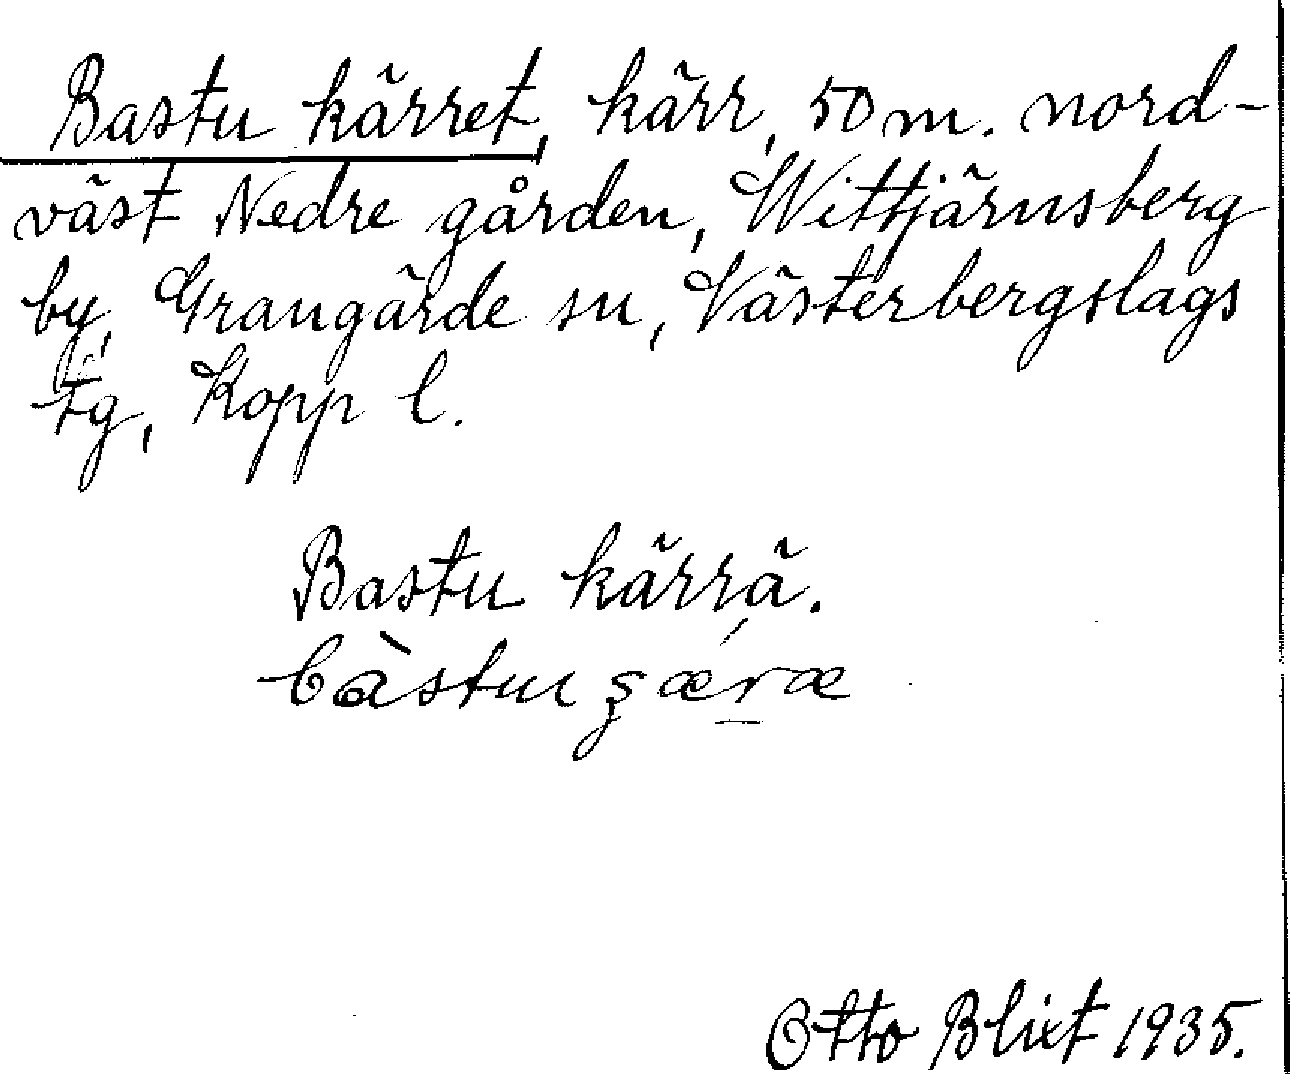 Bastu kärret, kärr, 50 m. nord-
väst Nedre gården, Wittjärnsberg
by, Grangärde sn, Västerbergslags
fg, Kopp l.
Bastu kärrä.
bàstu
Otto Blixt 1935.